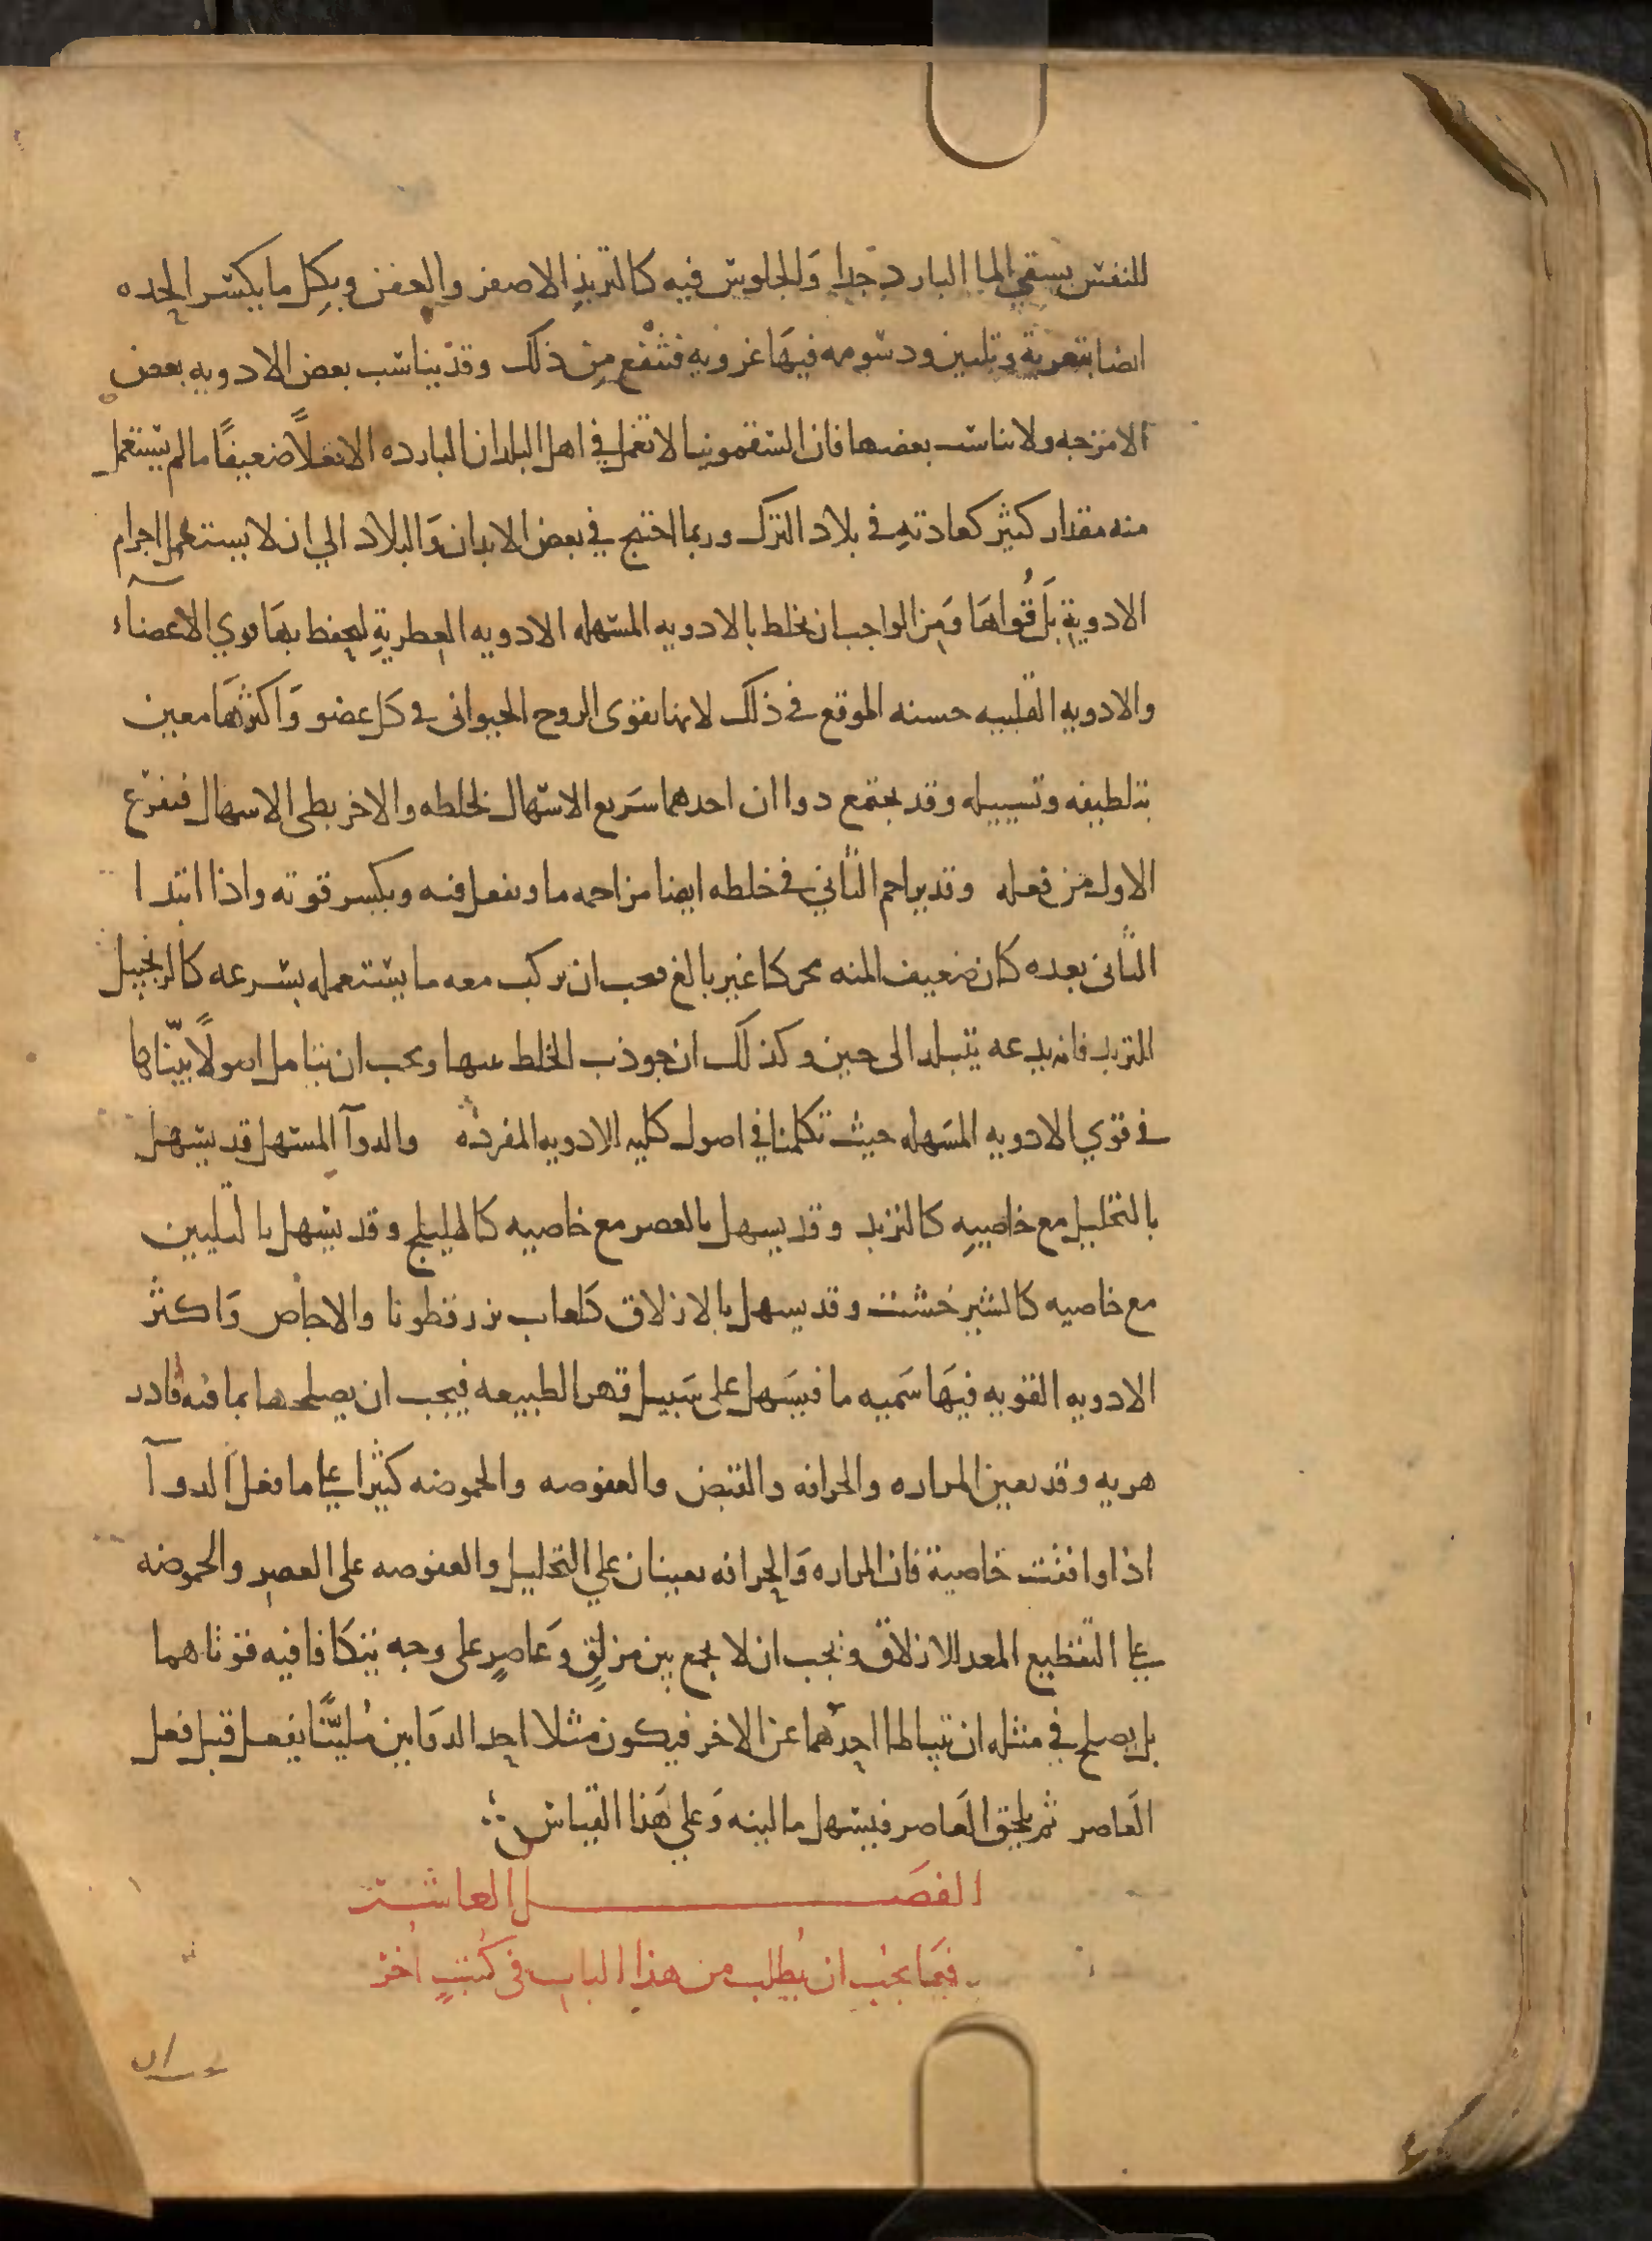 للنفس بسقي الماا البارد جدا وَالجلوس فيه كالتربذِ الاصفر والعفن وبكِل ما يكسر الحده
ايضا بتعرية وتليين ودسومه فيهَا غرويه فتنفع مِن ذلك وقد يناسب بعض الادويه بعض
الامزجه ولا يناسب بعضها فان السقمونيا لا تعمل في اهل البلدان البارده الا فعلاً ضعيفًا مالم يستعمل
منه مقدار كثير كعادتهِ في بلاد الترك وربما احتيج في بعض الابدان وَالبلاد الي ان لا يستعمل اجرام
الادويةِ بَل قُواهَا وَمِن الواجب ان يخلط بالادويه المسهله الادويه العِطريةِ ليحفظ بهَا قوي الاعضآء
والادويه القلبيه حسنه الموقع في ذلك لانها تقوى الروح الحيوانى في كل عضو وَاكثرهَا معين
بتلطيفه وتسييله وقد يجتمع دواان احدهما سَريع الاسهال لخلطه والاخر بطى الاسهال فيفرغ
الاول من فعله وقد يزاحم الثاني في خلطه ايضا مزاحمه ما ويفعل فيه ويكسر قوته واذا ابتدا
الثانى بعده كان ضعيف المنه محركا غير بالغ فيجب ان يركب معه ما يستعمله بسرعه كالزنجبيل
للتربد فانه يدعه يتبلد الى حين وكذلك ان جوذب الخلط بينها ويجب ان يتامل اصولاً بيّناها
في قوي الادويه المسَهله حيث تكلمنا في اصول كليه الادويه المفرده والدوآ المسهل قد يسهل
بالتحليل مع خاصيهِ كالتربد وقد يسهل بالعصر مع خاصيه كالهليلج وقد يسهل بالتليين
مع خاصيه كالشيرخشت وقد يسهل بالازلاق كلعاب بزرقطونا والاجاص وَاكثر
الادويه القويه فيهَا سَميه ما فيسَهل على سَبيل قهر الطبيعه فيجب ان يصلحها بما فيه فادر
هريه وقد تعين المراره والحرافه والقبض والعفوصه والحموضه كثيرا علي ما فعل الدوآ
اذا وافقت خاصية فان المراره وَالحرافه تعينان علي التحليل والعفوصه على العصرِ والحموضه
علي التقطيع المعد للازلاق ويجب ان لا يجمع بين مزلقٍ وَعاصرٍ على وجه يتكافا فيه قوتاهما
بل يصلح في مثله ان يتباطا احدهما عن الاخر فيكون مثلا احد الدوَاين مُليّنًا يفعل قبل فعل
العَاصر ثم يلحق العَاصر فيسهل ما لينه وَعلي هَذا القياس
الفصَل العاشر
فيمَا يجب ان يُطلب من هذا الباب في كُتبٍ اُخر